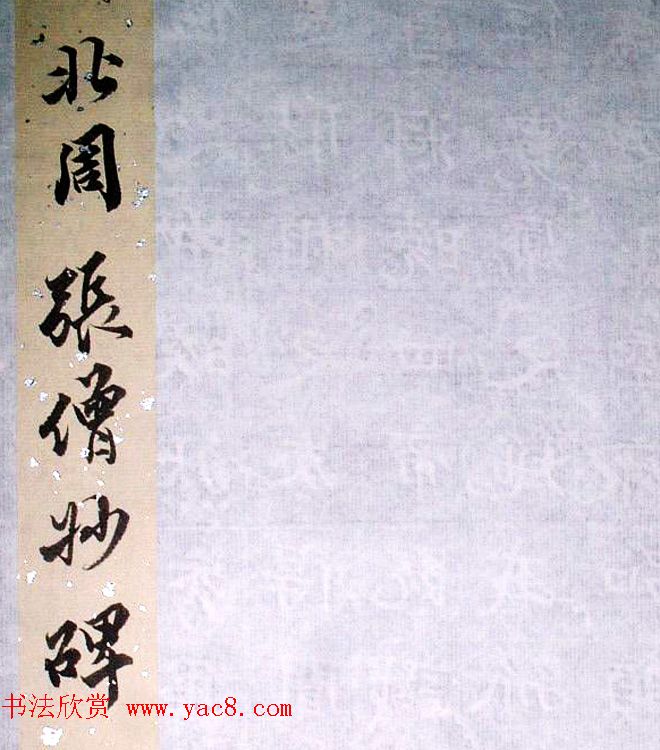 北周張僧妙碑
书法欣赏 www.yac8.com